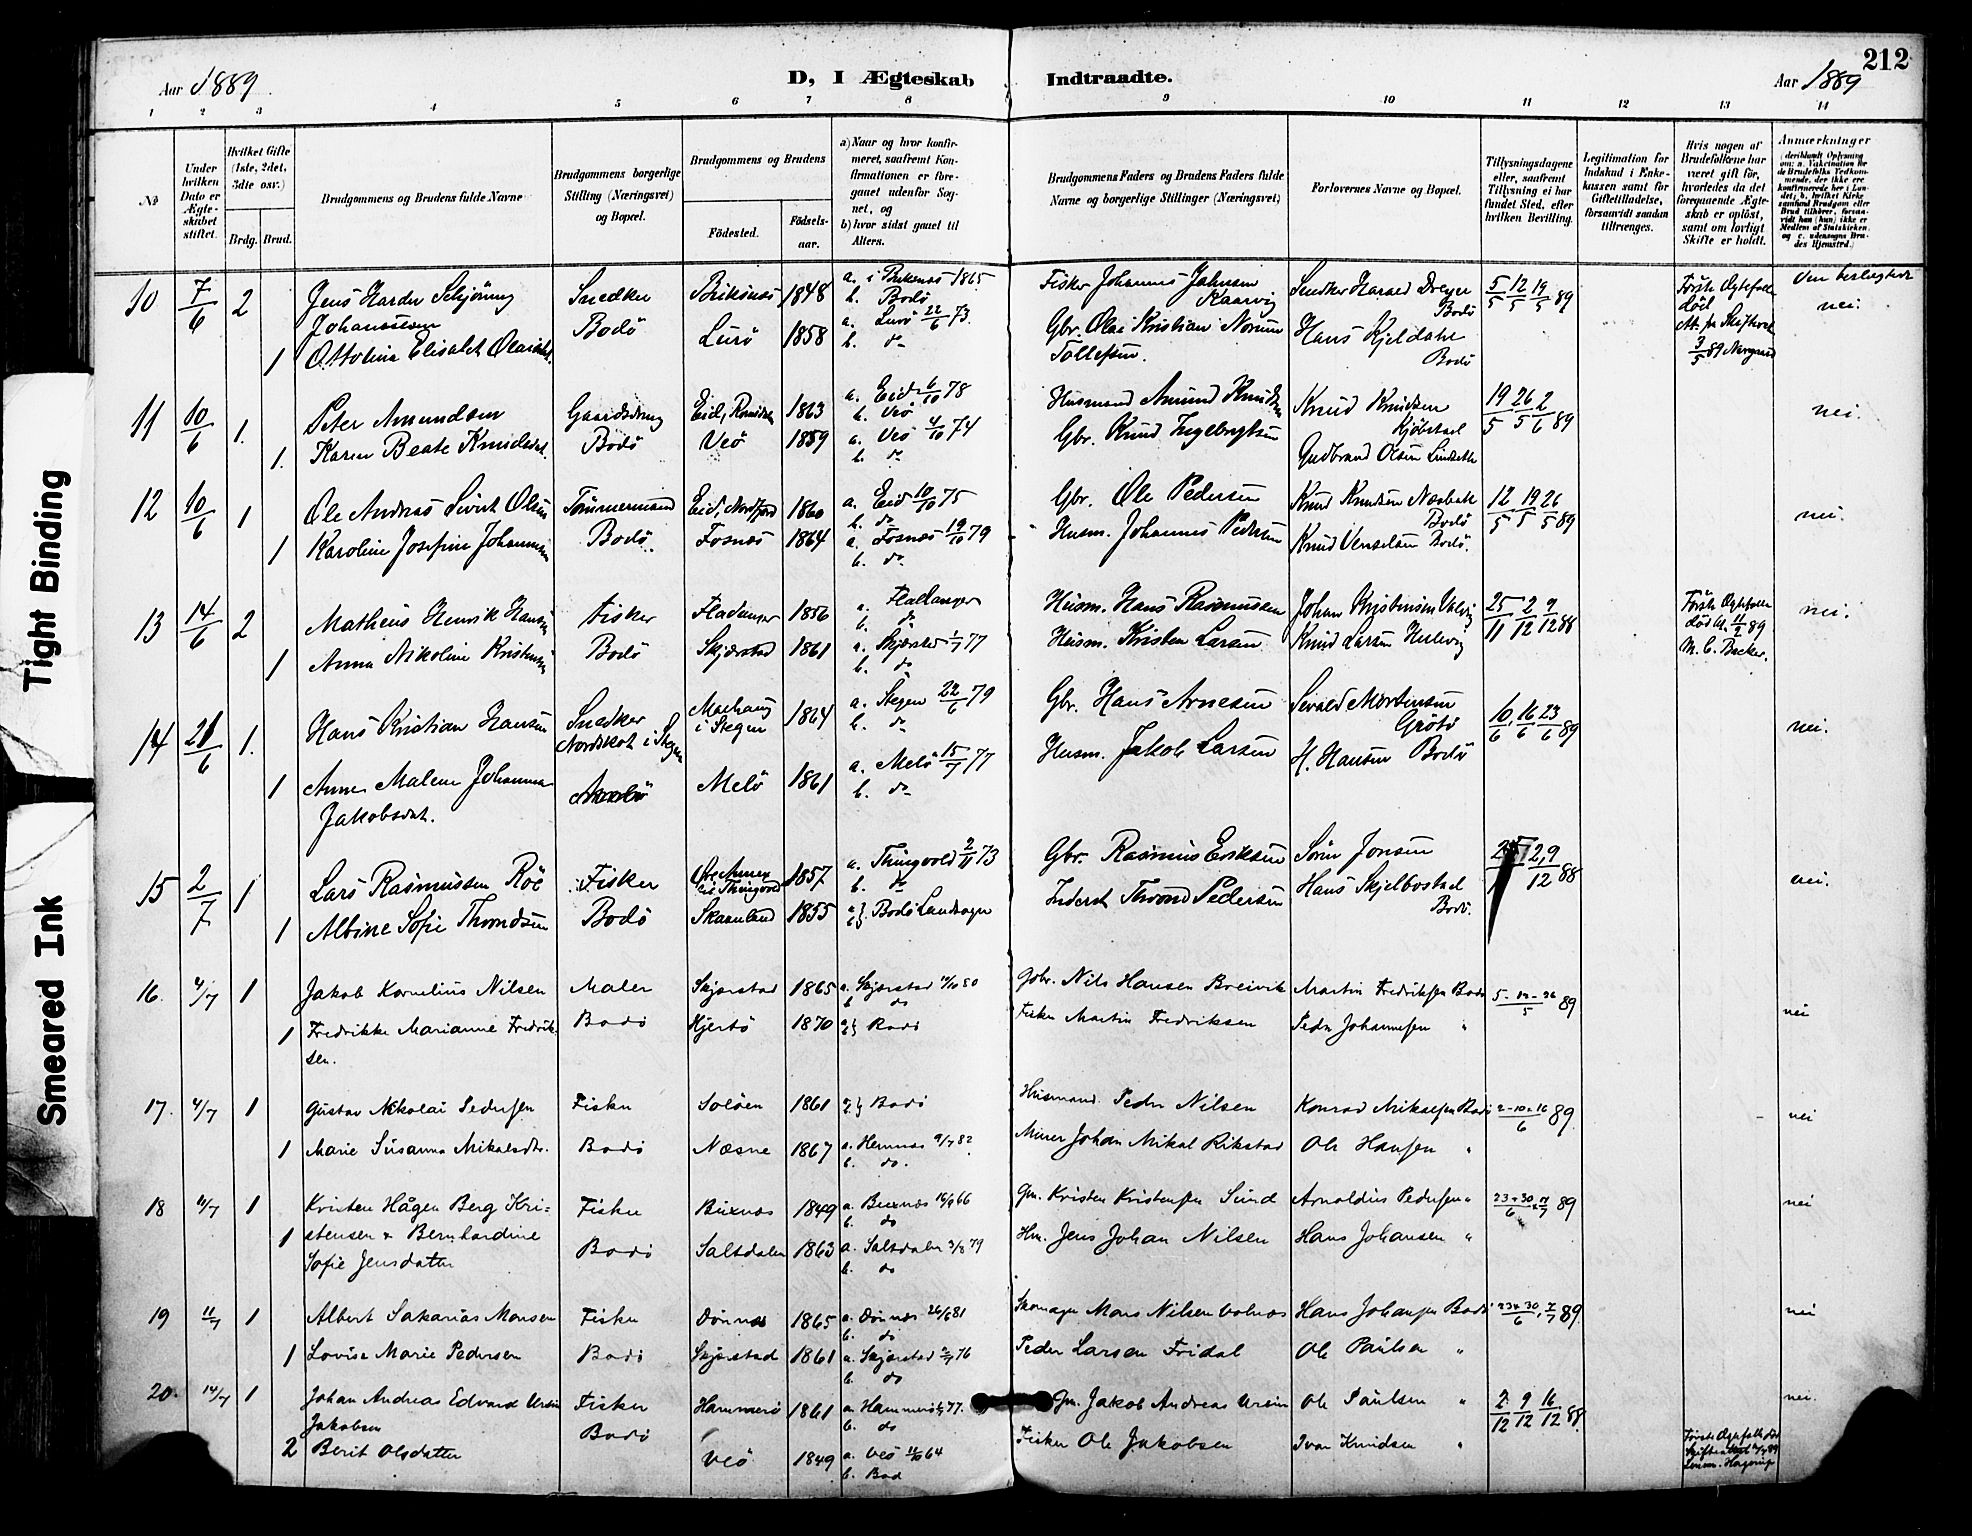 212
Aar 1889.
D, I Ægteskab Indtraadte.
Aar 1889
1 2 3 4 5 6 7 8 9 10 11 12 13 14
Nr
Under hvilken Dato er Ægteskabet stiftet.
Hvilket Gifte (1ste, 2det, 3dte osv.)
Brdg. Brud.
Brudgommens og Brudens fulde Navne
Brudgommens borgerlige Stilling (Næringsvei) og Bopæl.
Brudgommens og Brudens
Fødested.
Fødselsaar.
a) Naar og hvor konfirmeret, saafremt Konfirmationen er foregaaet udenfor Sognet, og
b) hvor sidst gaaet til Alters.
Brudgommens Faders og Brudens Faders fulde Navne og borgerlige Stillinger (Næringsvei)
Forlovernes Navne og Bopæl.
Tillysningsdagene eller, saafremt Tillysning ei har fundet Sted, efter hvilken Bevilling.
Legitimation for Indskud i Enkekassen samt for Giftetilladelse, forsaavidt saadan tiltrænges.
Hvis nogen af Brudefolkene har været gift før, hvorledes da det foregaaende Ægteskab er opløst, samt om lovligt Skifte er holdt.
Anmærkninger
10 7/6 2 Jens Harder Schjöning Snedker 1848 a. i 1865 Fisker Johannes Snedker Harald Dreyer 5/5 12/5 19/5 89 Første Ægtefælle
Johannesen Bodø b. Bodø Kaarvig Bodø død nei.
1 Ottolina Elisabet Lurö 1858 a. Lurö 22/6 73. Gbr. Olai Kristian Hans Kjeldahl
b. do Tollefsen. Bodø 3/5 89
11 10/6 1. Peter Amundsen Eid, 1863 a. Eid 6/10 78 Husmand Amund Knudsen Knud Knudsen 19/5 26/5 2/6 89 nei.
b. Veö
1. Karen Beate Knudsdat. Bodø Veö 1859 a. Veö 4/10 74 Gbr. Knud Ingebrigtsen Gudbrand Olsen
b. do
12 10/6 1 Ole Andreas Sivert Olsen Tømmermand Eid, Nordfjord 1860 a. Eid 10/10 75 Gbr. Ole Pedersen Knud Knudsen 12/5 19/5 26/5 89 nei.
b. do Bodø
1 Karoline Josefine Johannesen Bodø Fosnæs 1864 a. Fosnæs 19/10 79 Husm. Johannes Pedersen Knud Bodø.
b. do
13 14/6 2 Mathæus Henrik Hansen Fisker Fladanger 1856 a. Fladanger Husm. Hans Rasmussen Johan 25/11 2/12 9/12 88 Første Ægtefælle nei.
b. do død 11/2 89
1 Anna Nikoline Kristensen Bodø Skjærstad 1861 a. Skjærstad 1/7 77 Husm. Kristen Larsen Knud Larsen M. C. Backer.
b. do
14 21/6 1. Hans Kristian Hansen Snedker i Stegen 1864 a. Stegen 22/6 79 Gbr. Hans Arnesen Sivald Mortensen 16/6 23/6 89 nei.
Nordskot i Stegen b. do Grötö
1 Anne Malene Johanna Melö 1861 a. Melö 15/7 77 Husm. Jakob Larsen H. Hansen Bodø
Jakobsdat. b. do
15 2/7 1 Lars Rasmussen Röe Fisker 1857 a. Thingvold 2/11 73 Gbr. Rasmus Eriksen Sörin Jonsen 25 2,9/12 88 nei.
b. do
1 Albine Sofie Throndsen Bodø Skaanland 1855 a} b} Bodø Landsogn Inderst Thrond Pedersen Hans Skjelbostad
Bodø.
16. 4/7 1 Jakob Kornelius Nilsen Maler Skjerstad 1865 a. Skjerstad 10/10 80 Gbr. Nils Hansen Breivik Martin Fredriksen Bodø 5-12-26/5 89
b do
1 Fredrikke Marianne Fredriksen. Bodø Hjertö 1870 a} b} Bodø Fisker Martin Fredriksen Peder Johannesen " nei
17. 4/7 1 Gustav Nekolai Pedersen Fisker Soløen 1861 a} b} Bodø Husmand. Peder Nilsen Konrad Mikalsen Bodø 2-10-16/6 89 nei
1 Marie Susanna Mikalsdtr. Bodø Næsne 1867 a. Hemnæs 9/7 82 Murer Johan Mikal Rikstad Ole Hansen "
b. do.
18 4/7 1 Kristen Hågen Berg Kri= Fisker Buxnæs 1849 a. Buxnæs 16/9 66 Gm. Kristen Kristensen Sund Arnoldus Pedersen " 23+30/6 89 nei
b. do
1 stensen & Bernhardine Bodø Saltdalen 1863 a. Saltdalen 79 Hm. Jens Johan Nilsen Hans Johansen "
Sofie Jensdatter b. do
19 11/7 1 Albert Sakarias Monsen Fisker Dönnæs 1865 a. Dönnæs 26/6 81 Skomager Mons Nilsen Hans Johansen Bodø 23+30/6, 7/7 89 nei
b. do
1 Lovise Marie Pedersen Bodø Skjerstad 1861 a. Skjerstad 76 Peder Larsen Fridal Ole Paulsen "
b. do
20. 14/7 1 Johan Andreas Edvard Ursin Fisker Hammerö 1861 a. Hammerö 77. Gm. Jakob Andreas Ursin Ole Paulsen " 2/12 9/12 16/12 88 nei.
Jakobsen Bodø b. do
2 Berit Olsdatter Veö 1849 a. Veö 11/10 64 Fisker Ole Jakobsen Ivar Knudsen " Første Ægtefælle død
b. Bod
Tight Binding
Smeared Ink